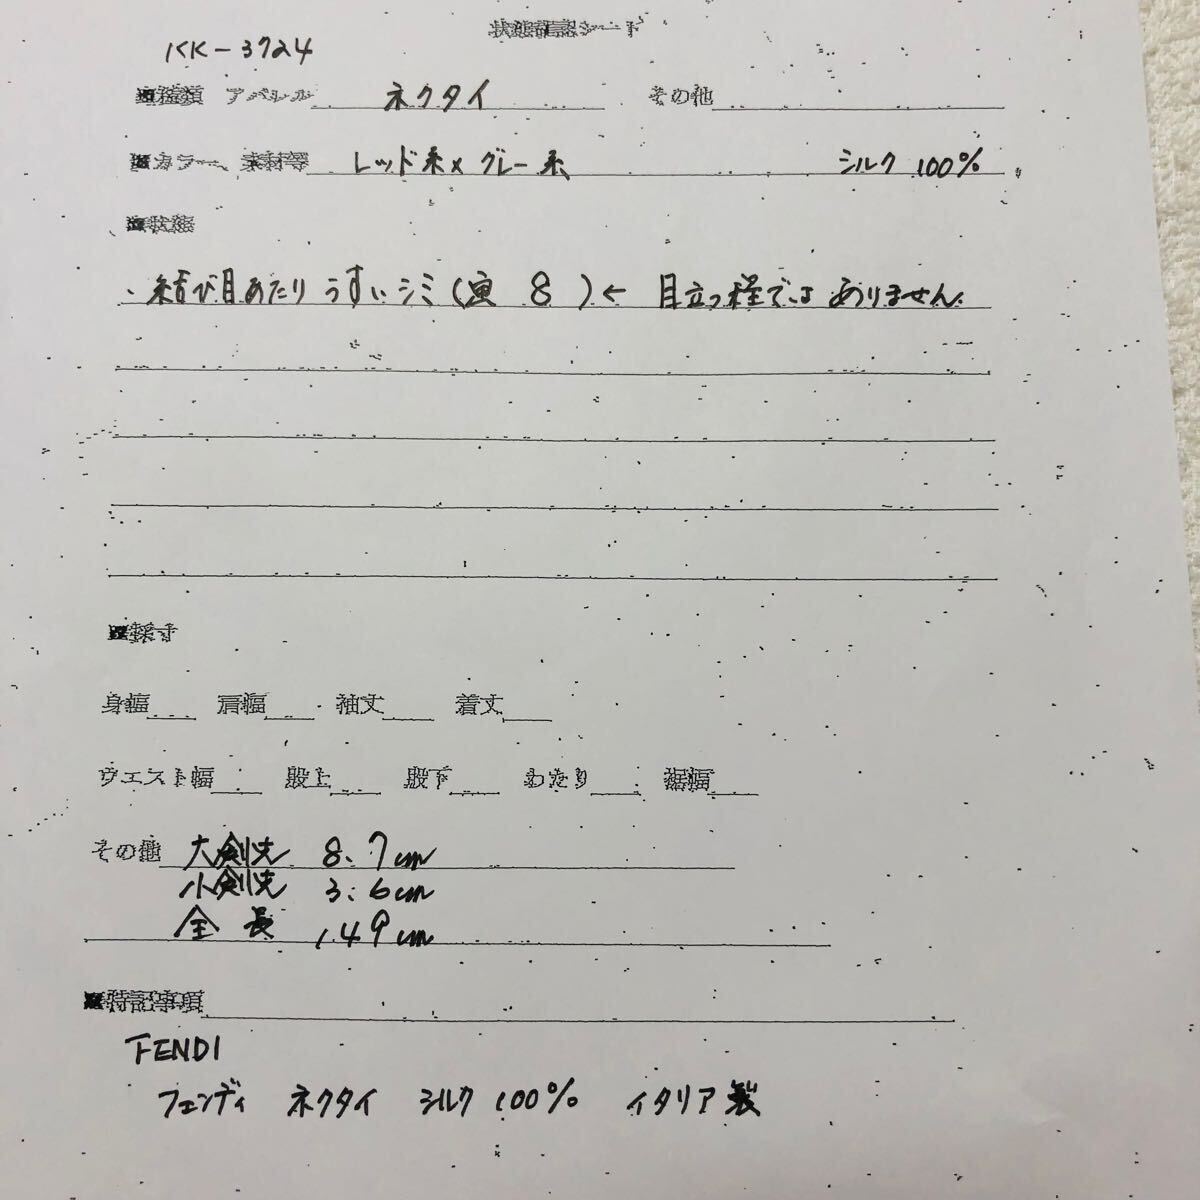 状態確認シート
KK-3724
■種類 アパレル ネクタイ その他
■カラー、素材等 レッド系×グレー系 シルク 100%
■状態
・結び目あたり うすいシミ(画 8 )← 目立つ程ではありません
■採寸
身幅 肩幅 袖丈 着丈
ウエスト幅 股上 股下 わたり 裾幅
その他 大剣先 8.7cm
小剣先 3.6cm
全長 149cm
■特記事項
FENDI
フェンディ ネクタイ シルク 100% イタリア製